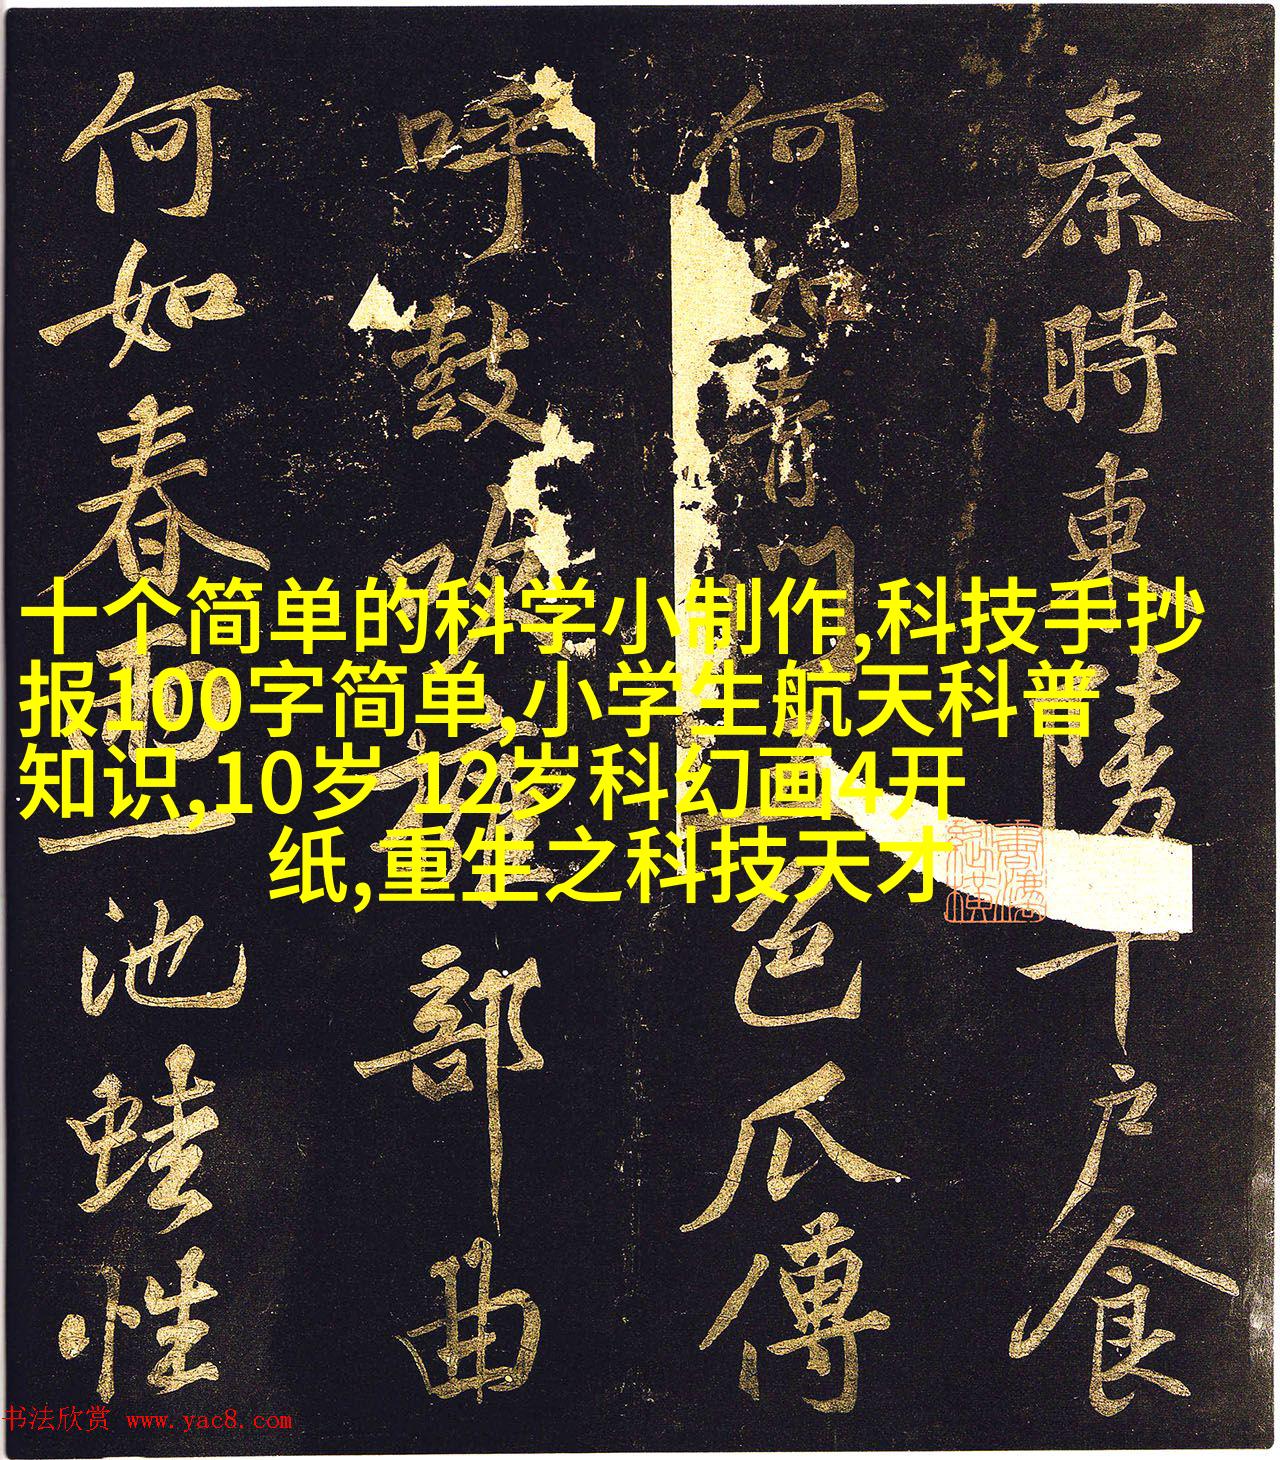 秦時東陵千戶食
何如青門色瓜傳
呼鼓吹部曲
何如春雨一池蛙性
十个简单的科学小制作,科技手抄
报100字简单,小学生航天科普
知识,10岁 12岁科幻画4开
纸,重生之科技天才
书法欣赏 www.yac8.com